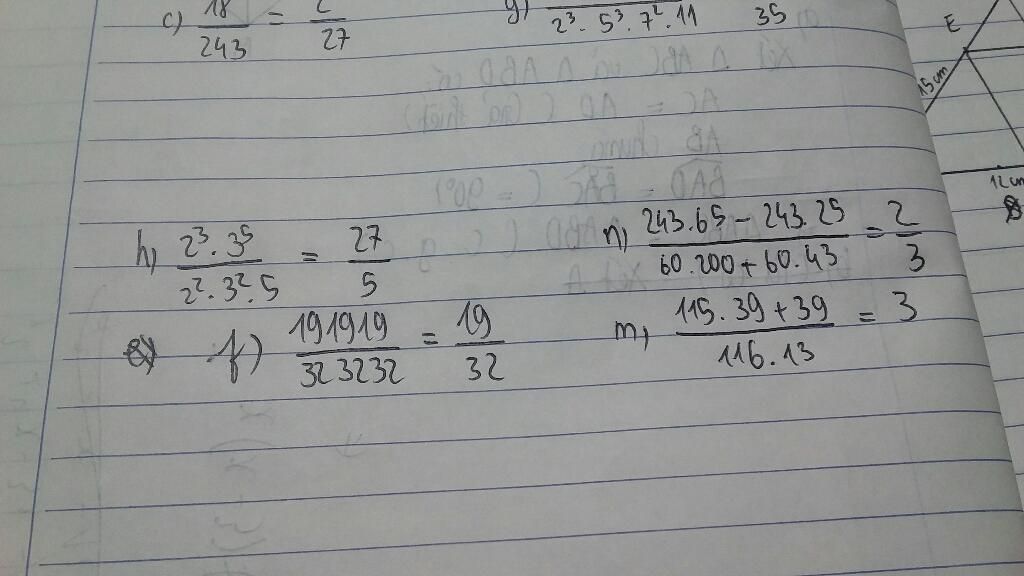 c) 18/243 = 2/27
g) 2³.5³.7².11 35
E
15cm
12cm
h) 2³.3⁵/2².3².5 = 27/5
n) 243.65 - 243.25/60.200 + 60.43 = 2/3
f) 191919/323232 = 19/32
m) 115.39 + 39/116.13 = 3